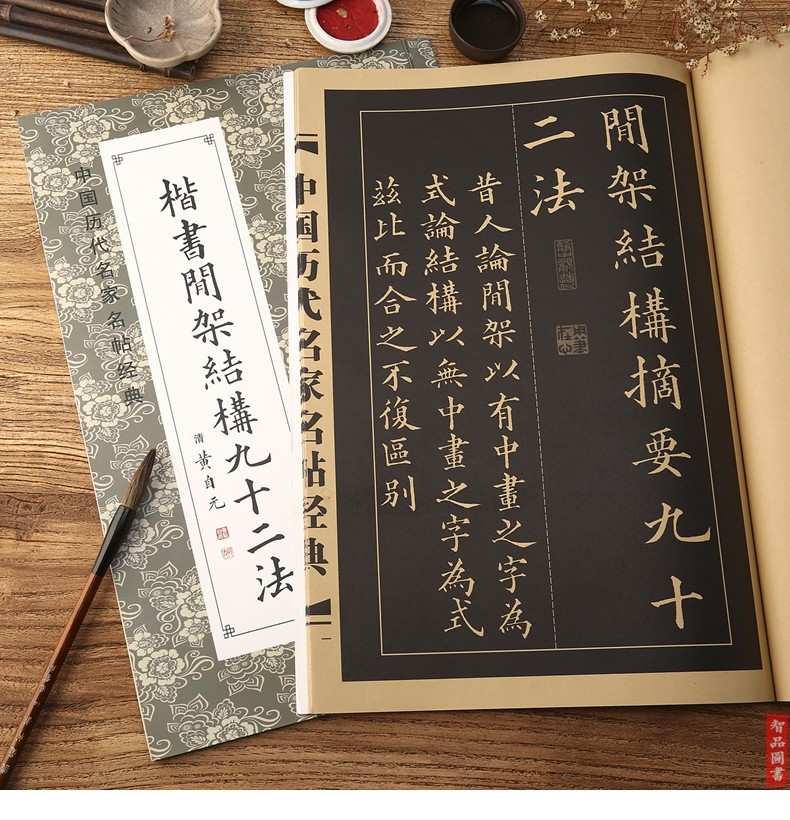 間架結構摘要九十
二法
昔人論間架以有中畫之字為
式論結構以無中畫之字為式
茲比而合之不復區别
中国历代名家名帖经典
一
中国历代名家名帖经典
楷書間架結構九十二法
清 黄自元
智品圖書